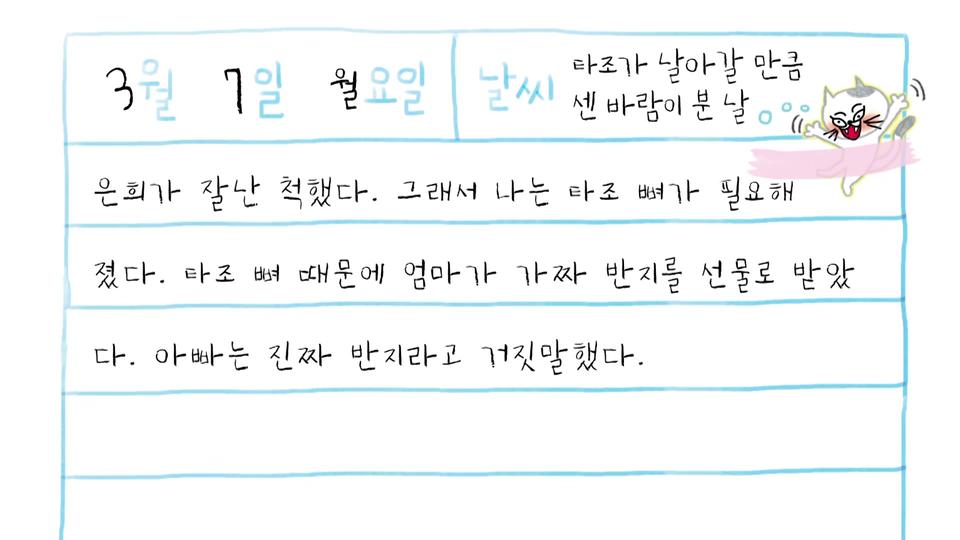 3월 7일 월요일 날씨 타조가 날아갈 만큼
센 바람이 분 날
은희가 잘난 척했다. 그래서 나는 타조 뼈가 필요해
졌다. 타조 뼈 때문에 엄마가 가짜 반지를 선물로 받았
다. 아빠는 진짜 반지라고 거짓말했다.